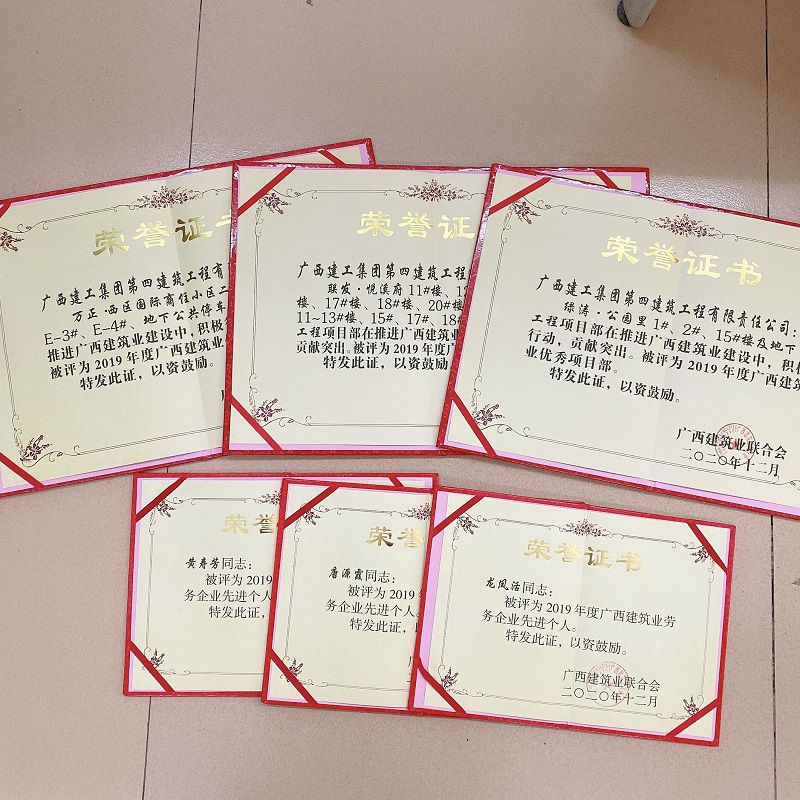 荣誉证书
广西建工集团第四建筑工程有
万正·西区国际商住小区二
E-3#、E-4#、地下公共停车
推进广西建筑业建设中，积极
被评为2019年度广西建筑业
特发此证，以资鼓励。
荣誉证
广西建工集团第四建筑工程
联发·悦溪府11#楼、12
楼、17#楼、18#楼、20#楼
11~13#楼、15#、17#、18#
工程项目部在推进广西建筑
贡献突出。被评为2019年度广
特发此证，以资鼓励
荣誉证书
广西建工集团第四建筑工程有限责任公司：
绿涛·公园里1#、2#、15#楼及地下
工程项目部在推进广西建筑业建设中，积极
行动，贡献突出。被评为2019年度广西建筑
业优秀项目部。
特发此证，以资鼓励。
广西建筑业联合会
二〇二〇年十二月
荣誉
黄寿芳同志：
被评为2019
务企业先进个人
特发此证，
荣誉
唐源霞同志：
被评为2019年
务企业先进个人。
特发此证，以资
荣誉证书
龙凤洁同志：
被评为2019年度广西建筑业劳
务企业先进个人。
特发此证，以资鼓励。
广西建筑业联合会
二〇二〇年十二月